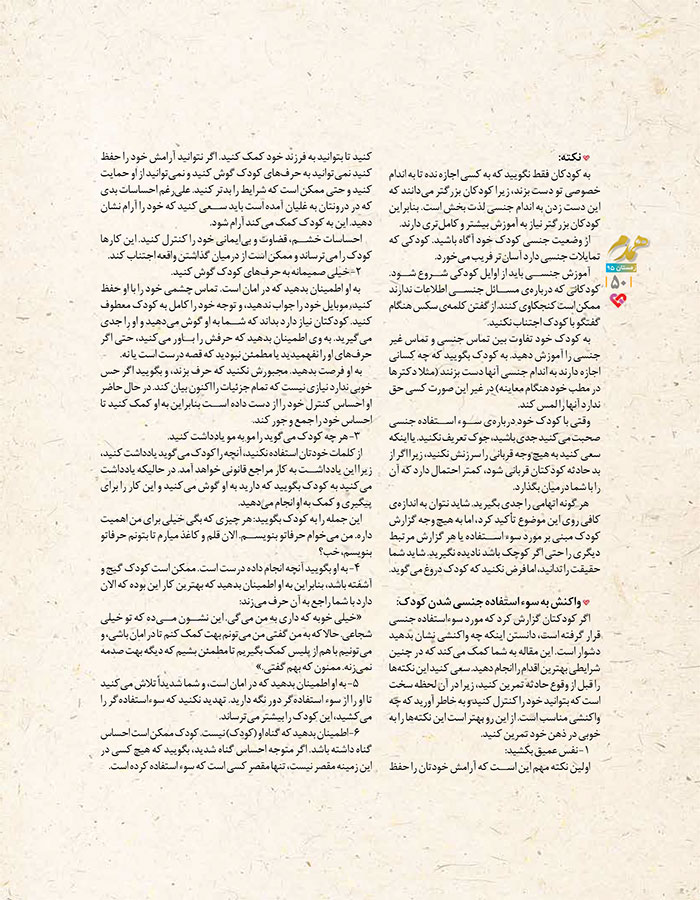 نکته:
به کودکان فقط نگویید که به کسی اجازه نده تا به اندام
خصوصی تو دست بزند، زیرا کودکان بزرگتر می‌دانند که
این دست زدن به اندام جنسی لذت بخش است. بنابراین
کودکان بزرگتر نیاز به آموزش بیشتر و کامل‌تری دارند.
از وضعیت جنسی کودک خود آگاه باشید. کودکی که
تمایلات جنسی دارد آسان‌تر فریب می‌خورد.
آموزش جنسی باید از اوایل کودکی شروع شود.
کودکانی که درباره‌ی مسائل جنسی اطلاعات ندارند
ممکن است کنجکاوی کنند. از گفتن کلمه‌ی سکس هنگام
گفتگو با کودک اجتناب نکنید.
به کودک خود تفاوت بین تماس جنسی و تماس غیر
جنسی را آموزش دهید. به کودک بگویید که چه کسانی
اجازه دارند به اندام جنسی آنها دست بزنند (مثلا دکترها
در مطب خود هنگام معاینه) در غیر این صورت کسی حق
ندارد آنها را لمس کند.
وقتی با کودک خود درباره‌ی سوء استفاده جنسی
صحبت می‌کنید جدی باشید، جوک تعریف نکنید. یا اینکه
سعی کنید به هیچ وجه قربانی را سرزنش نکنید، زیرا اگر از
بد حادثه کودکتان قربانی شود، کمتر احتمال دارد که آن
را با شما درمیان بگذارد.
هر گونه اتهامی را جدی بگیرید. شاید نتوان به اندازه‌ی
کافی روی این موضوع تأکید کرد، اما به هیچ وجه گزارش
کودک مبنی بر مورد سوء استفاده یا هر گزارش مرتبط
دیگری را حتی اگر کوچک باشد نادیده نگیرید. شاید شما
حقیقت را ندانید، اما فرض نکنید که کودک دروغ می‌گوید.
واکنش به سوء استفاده جنسی شدن کودک:
اگر کودکتان گزارش کرد که مورد سوءاستفاده جنسی
قرار گرفته است، دانستن اینکه چه واکنشی نشان بدهید
دشوار است. این مقاله به شما کمک می‌کند که در چنین
شرایطی بهترین اقدام را انجام دهید. سعی کنید این نکته‌ها
را قبل از وقوع حادثه تمرین کنید، زیرا در آن لحظه سخت
است که بتوانید خود را کنترل کنید و به خاطر آورید که چه
واکنشی مناسب است. از این رو بهتر است این نکته‌ها را به
خوبی در ذهن خود تمرین کنید.
۱- نفس عمیق بکشید:
اولین نکته مهم این است که آرامش خودتان را حفظ
کنید تا بتوانید به فرزند خود کمک کنید. اگر نتوانید آرامش خود را حفظ
کنید نمی‌توانید به حرف‌های کودک گوش کنید و نمی‌توانید از او حمایت
کنید و حتی ممکن است که شرایط را بدتر کنید. علی‌رغم احساسات بدی
که در درونتان به غلیان آمده است باید سعی کنید که خود را آرام نشان
دهید. این به کودک کمک می‌کند آرام شود.
احساسات خشم، قضاوت و بی‌ایمانی خود را کنترل کنید. این کارها
کودک را می‌ترساند و ممکن است از درمیان گذاشتن واقعه اجتناب کند.
۲- خیلی صمیمانه به حرف‌های کودک گوش کنید.
به او اطمینان بدهید که در امان است. تماس چشمی خود را با او حفظ
کنید، موبایل خود را جواب ندهید، و توجه خود را کامل به کودک معطوف
کنید. کودکتان نیاز دارد بداند که شما به او گوش می‌دهید و او را جدی
می‌گیرید. به وی اطمینان بدهید که حرفش را باور می‌کنید، حتی اگر
حرف‌های او را نفهمیدید یا مطمئن نبودید که قصه درست است یا نه.
به او فرصت بدهید. مجبورش نکنید که حرف بزند، و بگویید اگر حس
خوبی ندارد نیازی نیست که تمام جزئیات را اکنون بیان کند. در حال حاضر
او احساس کنترل خود را از دست داده است بنابراین به او کمک کنید تا
احساس خود را جمع و جور کند.
۳- هر چه کودک می‌گوید را مو به مو یادداشت کنید.
از کلمات خودتان استفاده نکنید، آنچه را کودک می‌گوید یادداشت کنید،
زیرا این یادداشت به کار مراجع قانونی خواهد آمد. در حالیکه یادداشت
می‌کنید به کودک بگویید که دارید به او گوش می‌کنید و این کار را برای
پیگیری و کمک به او انجام می‌دهید.
این جمله را به کودک بگویید: هر چیزی که بگی خیلی برای من اهمیت
داره. من می‌خوام حرفاتو بنویسم. الان قلم و کاغذ میارم تا بتونم حرفاتو
بنویسم، خب؟
۴- به او بگویید آنچه انجام داده درست است. ممکن است کودک گیج و
آشفته باشد، بنابراین به او اطمینان بدهید که بهترین کار این بوده که الان
دارد با شما راجع به آن حرف می‌زند:
«خیلی خوبه که داری به من می‌گی. این نشون می‌ده که تو خیلی
شجاعی. حالا که به من گفتی من می‌تونم بهت کمک کنم تا در امان باشی، و
می‌تونیم با هم از پلیس کمک بگیریم تا مطمئن بشیم که دیگه بهت صدمه
نمی‌زنه. ممنون که بهم گفتی.»
۵- به او اطمینان بدهید که در امان است، و شما شدیداً تلاش می‌کنید
تا او را از سوء استفاده‌گر دور نگه دارید. تهدید نکنید که سوءاستفاده‌گر را
می‌کشید، این کودک را بیشتر می‌ترساند.
۶- اطمینان بدهید که گناه او (کودک) نیست. کودک ممکن است احساس
گناه داشته باشد. اگر متوجه احساس گناه شدید، بگویید که هیچ کسی در
این زمینه مقصر نیست، تنها مقصر کسی است که سوء استفاده کرده است.
همدم
زمستان ۹۵
۵۰